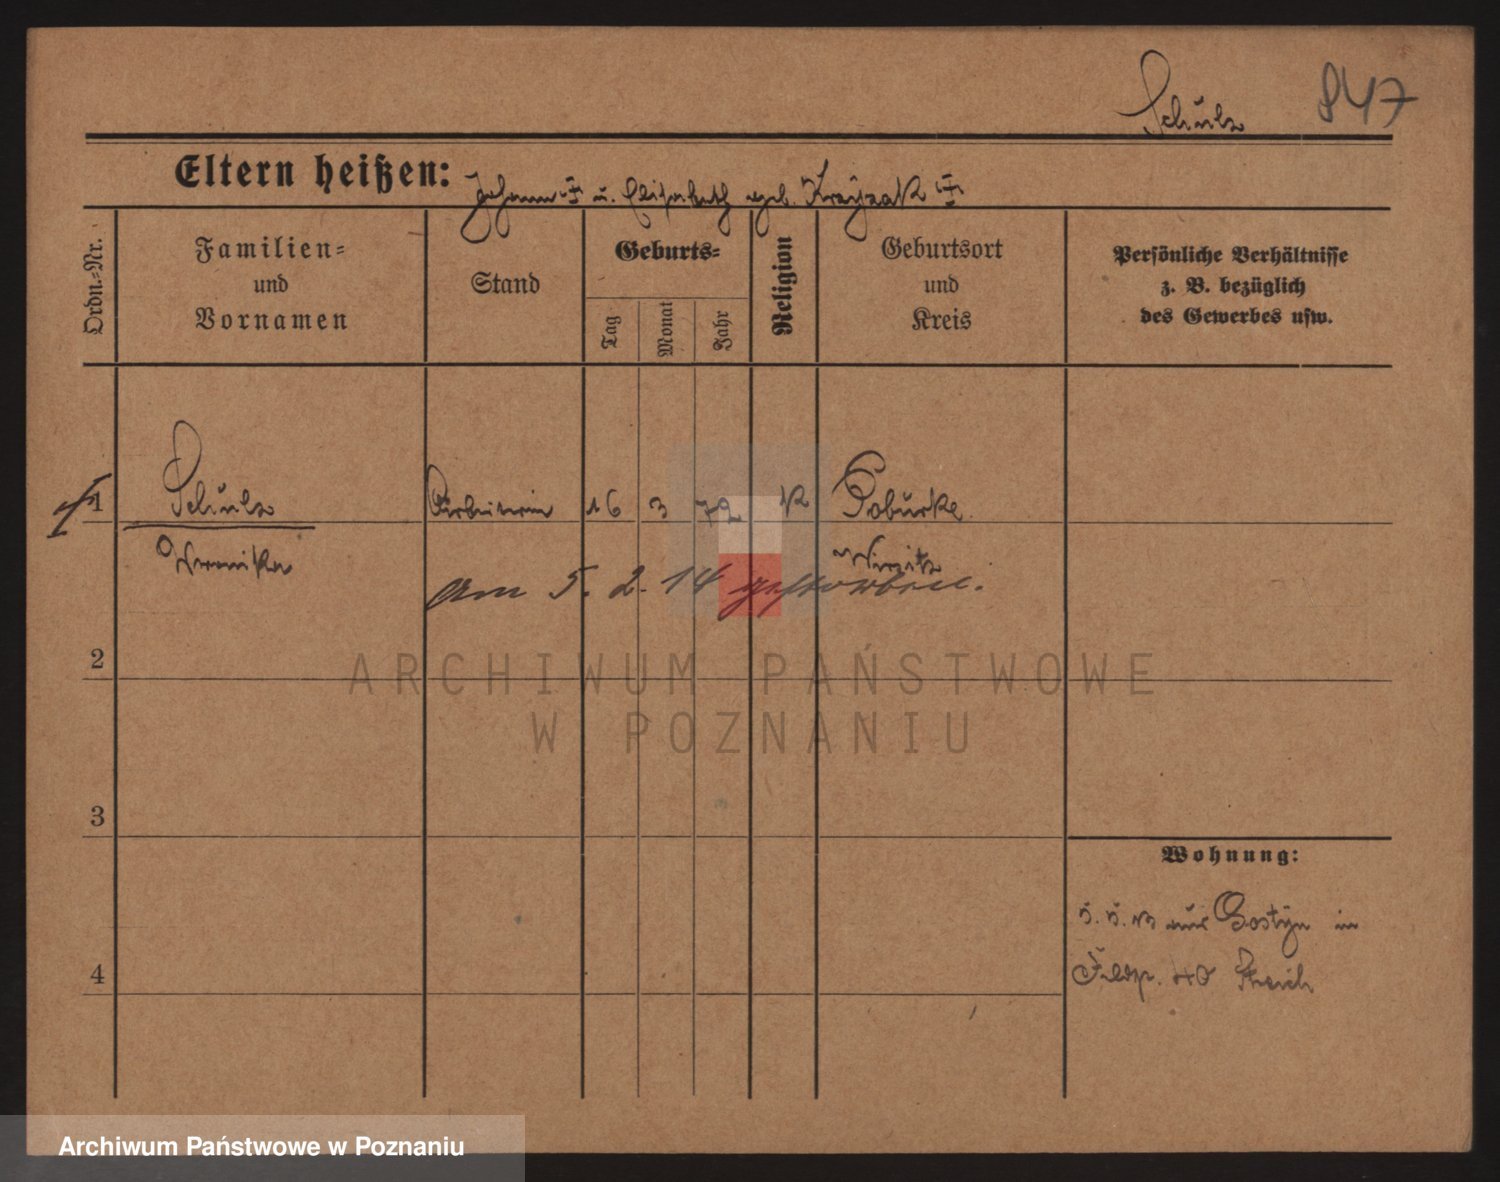 Schulz 847
Eltern heißen: Johann u. Elisabeth geb.
Ordn.-Nr.
Familien-
und
Vornamen
Stand
Geburts-
Tag
Monat
Jahr
Religion
Geburtsort
und
Kreis
Persönliche Verhältnisse
z. B. bezüglich
des Gewerbes usw.
1 Schulz Arbeiterin 16 3 72 K Doburke
Veronika Wirsitz
am 5. 2. 14 gestorben.
2
ARCHIWUM PAŃSTWOWE
W POZNANIU
3
Wohnung:
aus Gostyn in
4
Archiwum Państwowe w Poznaniu